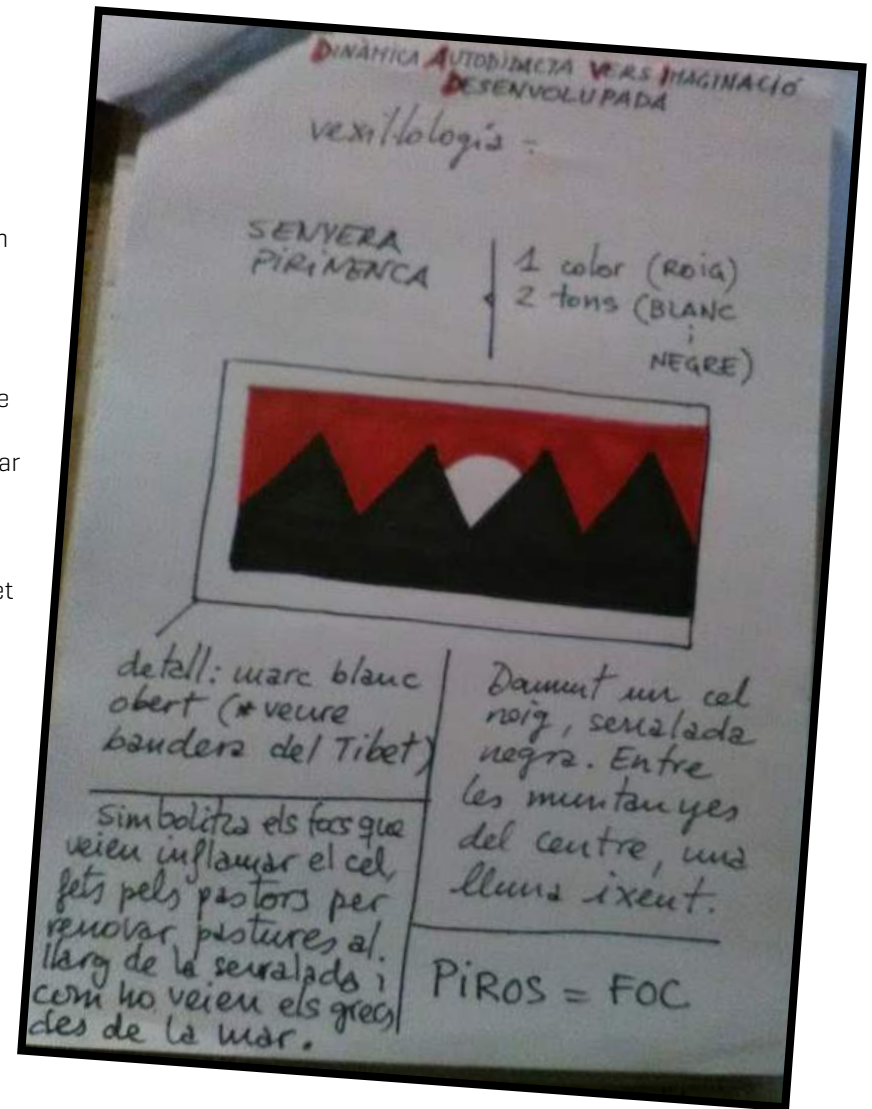 n
e
ar
et
DINÀMICA AUTODIDACTA VERS IMAGINACIÓ
DESENVOLUPADA
vexil·lologia -
SENYERA
PIRINENCA
1 color (ROIG)
2 tons (BLANC
i
NEGRE)
detall: marc blanc
obert (* veure
bandera del Tibet)
Simbolitza els focs que
veien inflamar el cel,
fets pels pastors per
renovar pastures al
llarg de la serralada i
com ho veien els grecs
des de la mar.
Damunt un cel
roig, serralada
negra. Entre
les muntanyes
del centre, una
lluna ixent.
PIROS = FOC